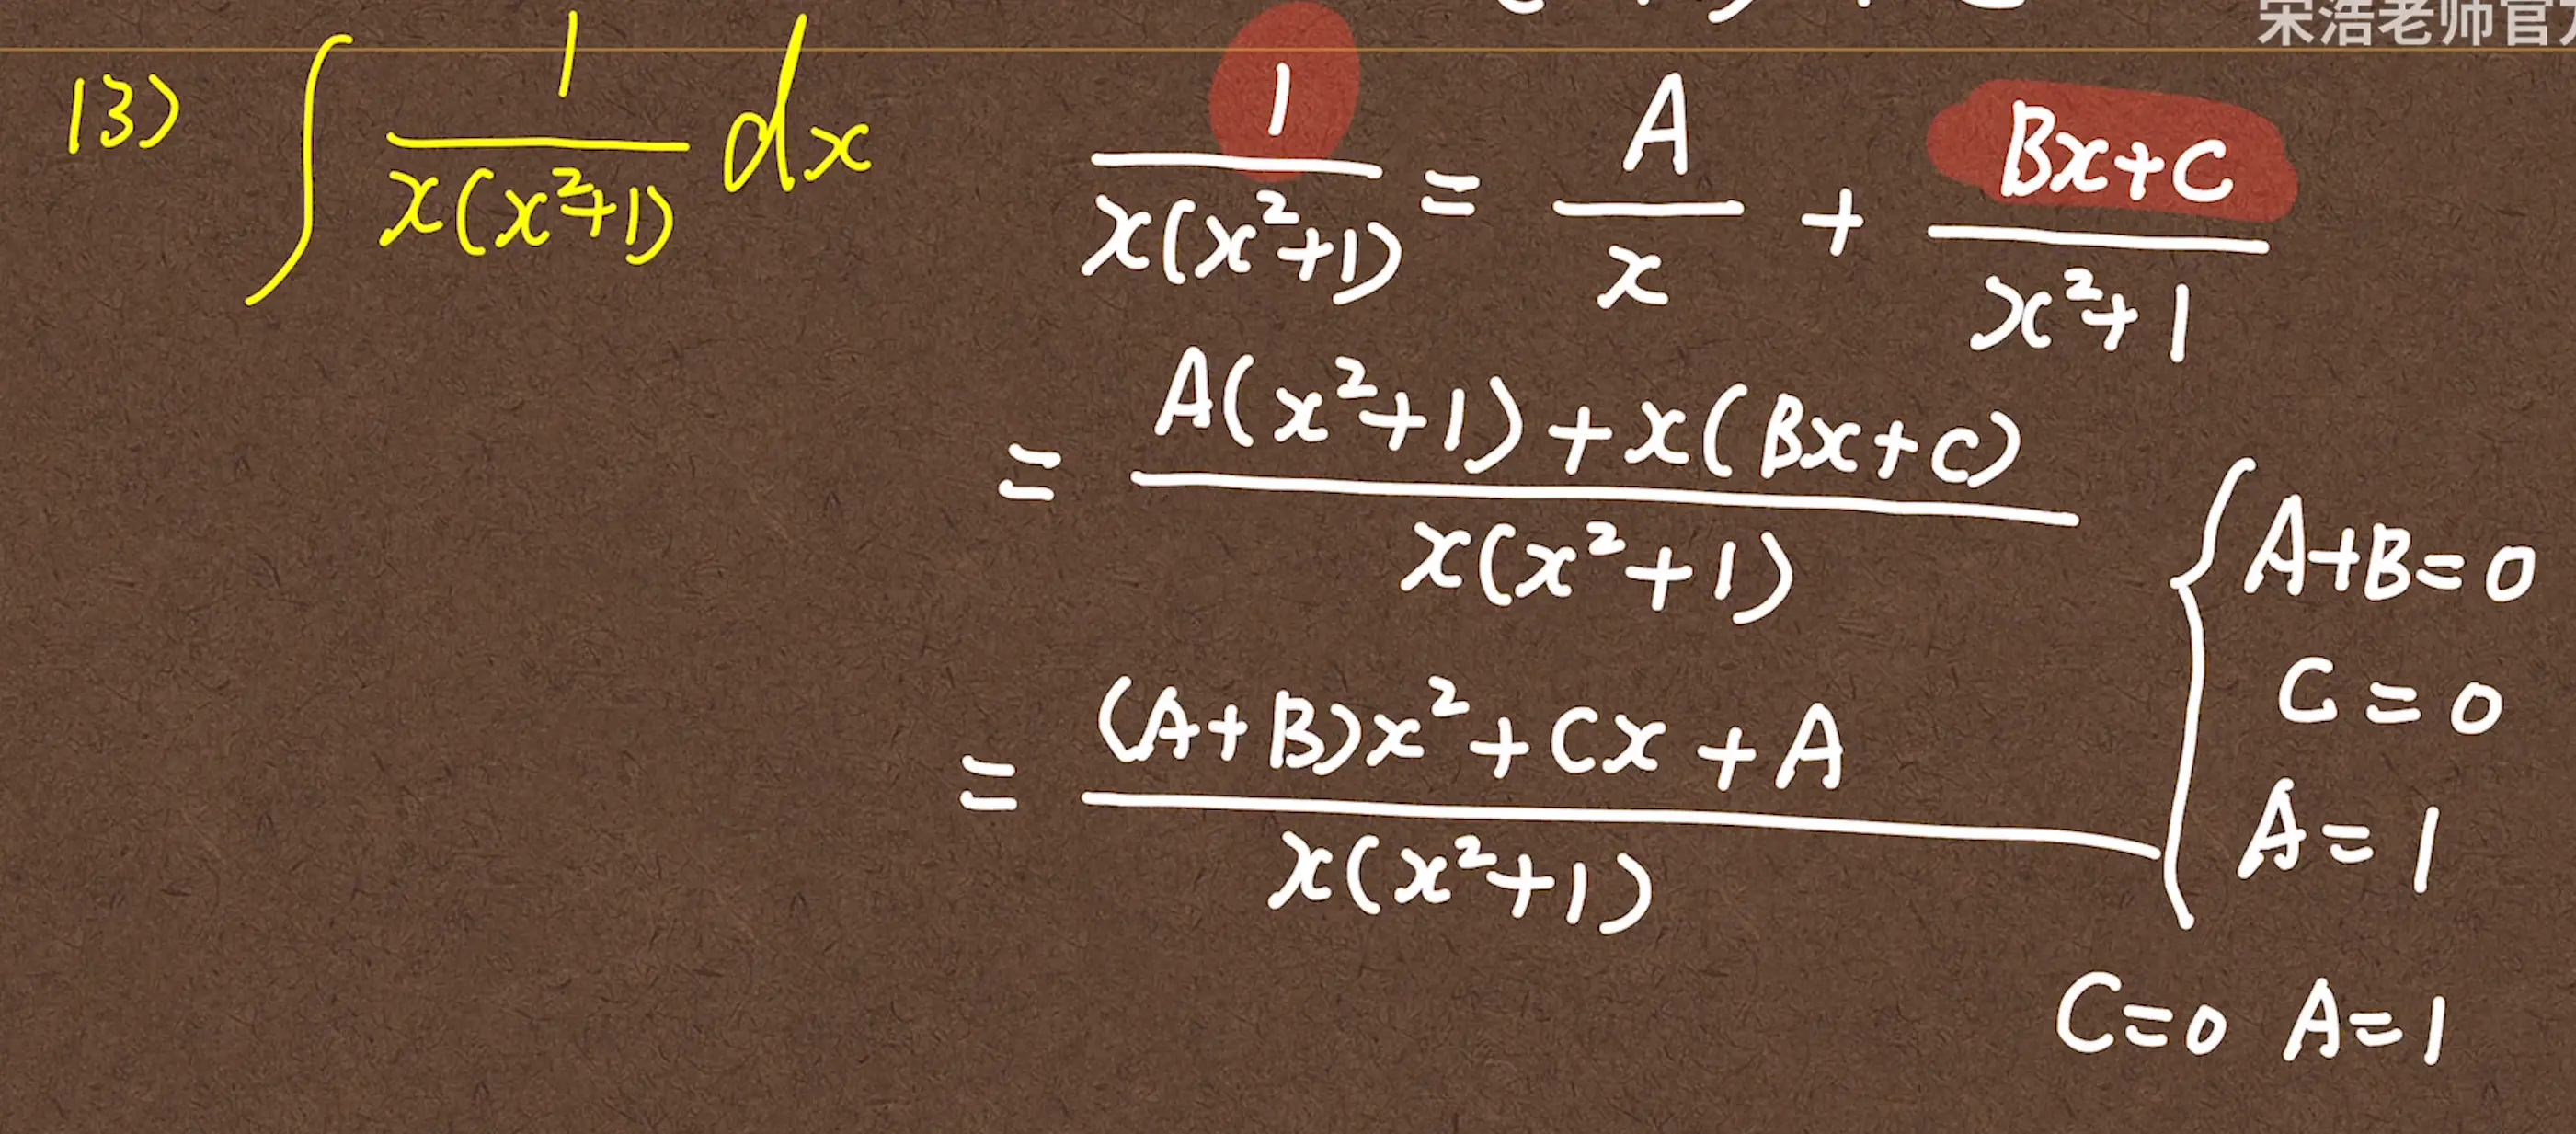 宋浩老师官方
13) ∫ 1/(x(x²+1)) dx
1/(x(x²+1)) = A/x + (Bx+C)/(x²+1)
= (A(x²+1)+x(Bx+C))/(x(x²+1))
= ((A+B)x²+Cx+A)/(x(x²+1))
{ A+B=0
C=0
A=1
C=0 A=1